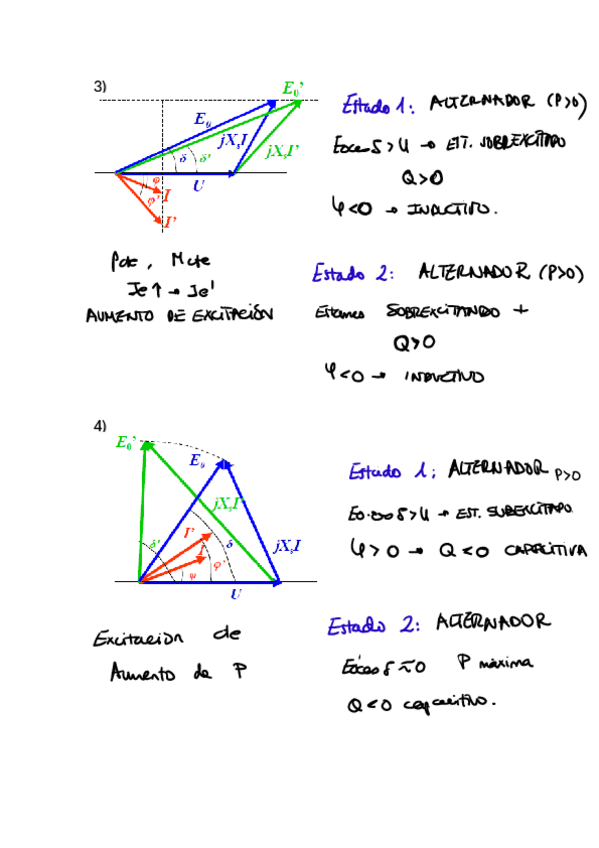 3)
E₀'
E₀
jXₛI
jXₛI'
δ
δ'
U
φ
φ'
I
I'
Estado 1: ALTERNADOR (P>0)
E₀cos δ > U → EST. SOBREXCITADO
Q>0
φ<0 → INDUCTIVO.
Pcte, Mcte
Ie↑ → Ie'
AUMENTO DE EXCITACIÓN
Estado 2: ALTERNADOR (P>0)
Estamos SOBREXCITANDO +
Q>0
φ<0 → INDUCTIVO
4)
E₀'
E₀
jXₛI'
jXₛI
I'
I
δ'
δ
φ
φ'
U
Estado 1; ALTERNADOR P>0
E₀·cos δ > U → EST. SUBEXCITADO.
φ>0 → Q<0 CAPACITIVA
Excitación de
Aumento de P
Estado 2: ALTERNADOR
E₀'cos δ ≈ 0 P máxima
Q<0 capacitivo.